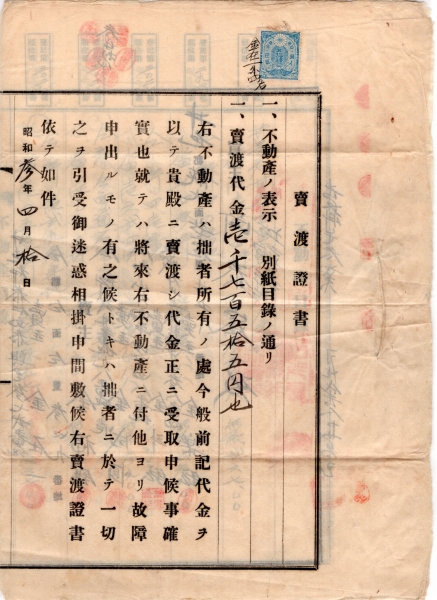 賣渡證書
一、不動產ノ表示　別紙目錄ノ通リ
一、賣渡代金壱千七百五拾五円也
右不動產ハ拙者所有ノ處今般前記代金ヲ
以テ貴殿ニ賣渡シ代金正ニ受取申候事確
實也就テハ將來右不動產ニ付他ヨリ故障
申出ルモノ有之候トキハ拙者ニ於テ一切
之ヲ引受御迷惑相掛申間敷候右賣渡證書
依テ如件
昭和参年四月拾日